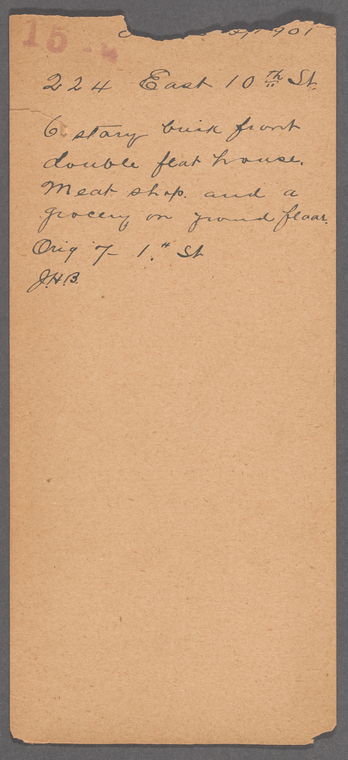 15
901
224 East 10th St.
6 story brick front
double flat house.
Meat shop. and a
grocery on ground floor.
Orig 7- 1." St
J.H.B.